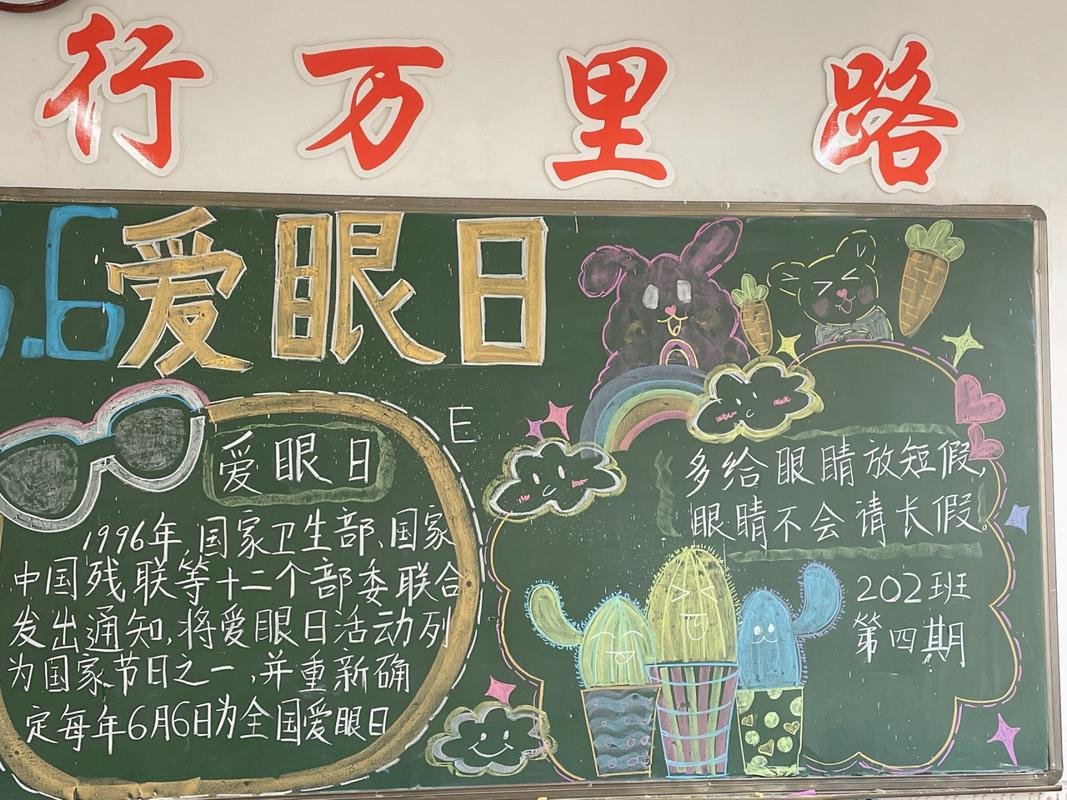 行万里路
6.6爱眼日
爱眼日
1996年,国家卫生部、国家
中国残联等十二个部委联合
发出通知,将爱眼日活动列
为国家节日之一,并重新确
定每年6月6日为全国爱眼日
E
多给眼睛放短假,
眼睛不会请长假。
202班
第四期